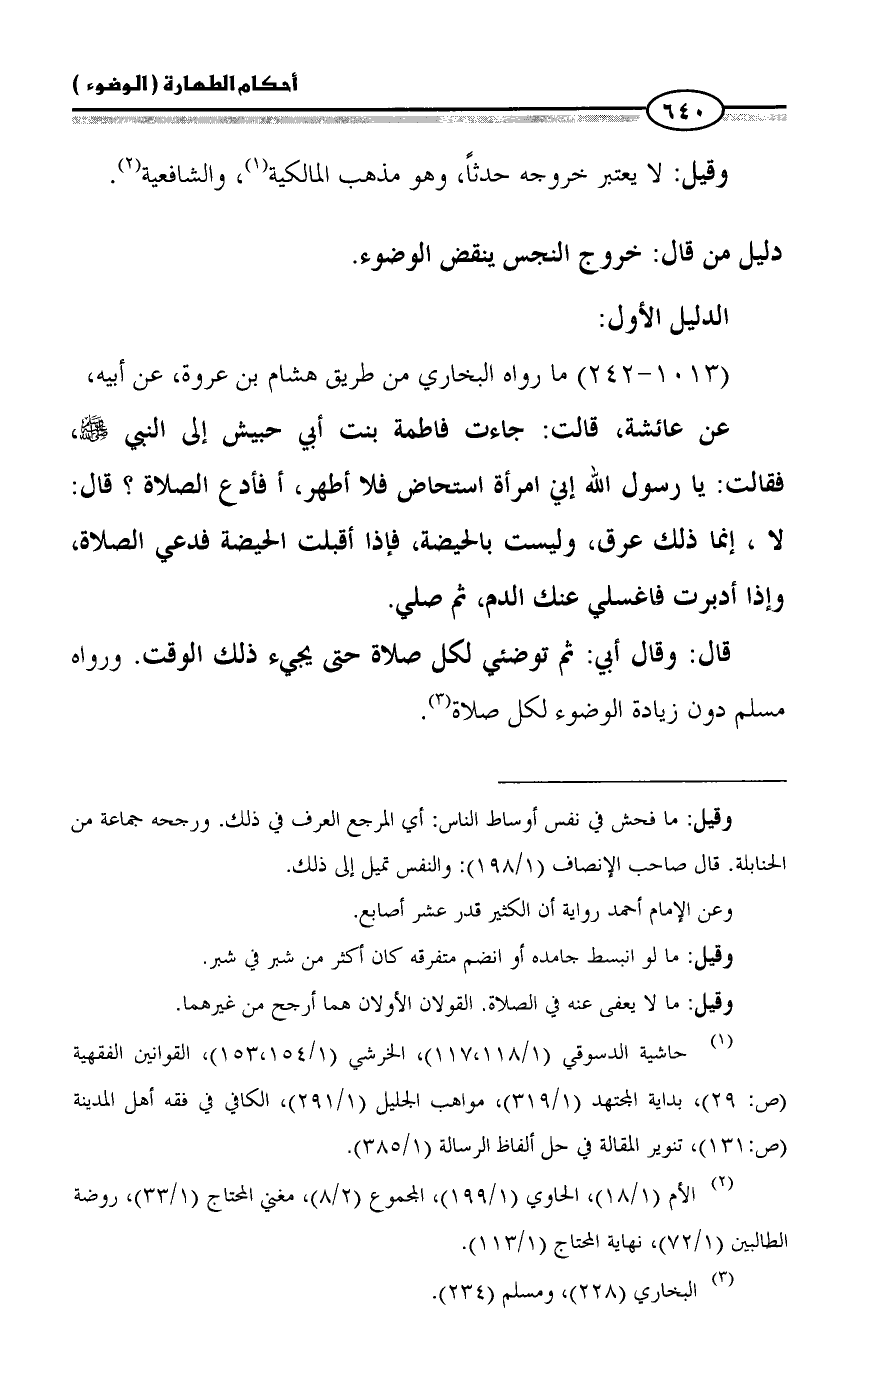 أحكام الطهارة ( الوضوء )
٦٤٠
وقيل: لا يعتبر خروجه حدثاً، وهو مذهب المالكية(١)، والشافعية(٢).
دليل من قال: خروج النجس ينقض الوضوء.
الدليل الأول:
(١٠١٣-٢٤٢) ما رواه البخاري من طريق هشام بن عروة، عن أبيه،
عن عائشة، قالت: جاءت فاطمة بنت أبي حبيش إلى النبي ﷺ،
فقالت: يا رسول الله إني امرأة استحاض فلا أطهر، أ فأدع الصلاة ؟ قال:
لا ، إنما ذلك عرق، وليست بالحيضة، فإذا أقبلت الحيضة فدعي الصلاة،
وإذا أدبرت فاغسلي عنك الدم، ثم صلي.
قال: وقال أبي: ثم توضئي لكل صلاة حتى يجيء ذلك الوقت. ورواه
مسلم دون زيادة الوضوء لكل صلاة(٣).
وقيل: ما فحش في نفس أوساط الناس: أي المرجع العرف في ذلك. ورجحه جماعة من
الحنابلة. قال صاحب الإنصاف (١٩٨/١): والنفس تميل إلى ذلك.
وعن الإمام أحمد رواية أن الكثير قدر عشر أصابع.
وقيل: ما لو انبسط جامده أو انضم متفرقه كان أكثر من شبر في شبر.
وقيل: ما لا يعفى عنه في الصلاة. القولان الأولان هما أرجح من غيرهما.
(١) حاشية الدسوقي (١١٧،١١٨/١)، الخرشي (١٥٣،١٥٤/١)، القوانين الفقهية
(ص: ٢٩)، بداية المجتهد (٣١٩/١)، مواهب الجليل (٢٩١/١)، الكافي في فقه أهل المدينة
(ص:١٣١)، تنوير المقالة في حل ألفاظ الرسالة (٣٨٥/١).
(٢) الأم (١٨/١)، الحاوي (١٩٩/١)، المجموع (٨/٢)، مغني المحتاج (٣٣/١)، روضة
الطالبين (٧٢/١)، نهاية المحتاج (١١٣/١).
(٣) البخاري (٢٢٨)، ومسلم (٢٣٤).